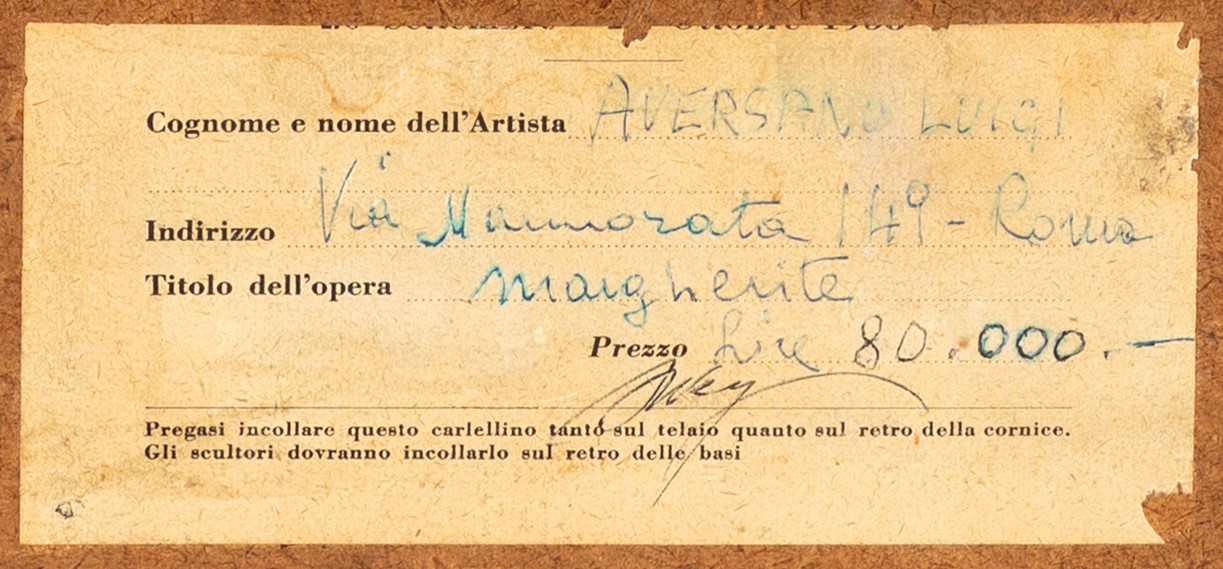 Ottobre
Cognome e nome dell'Artista AVERSANO LUIGI
Indirizzo Via Marmorata 149 - Roma
Titolo dell'opera margherite
Prezzo Lire 80.000.—
Pregasi incollare questo carlellino tanto sul telaio quanto sul retro della cornice.
Gli scultori dovranno incollarlo sul retro delle basi